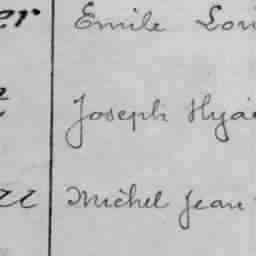 er Emile Loui
Joseph Hya
Michel Jean